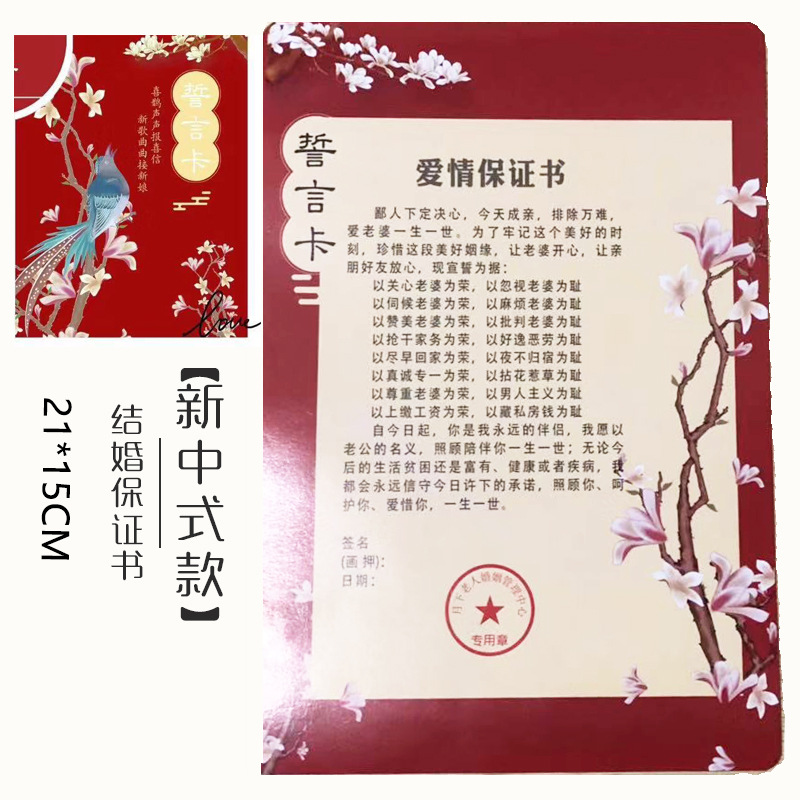 誓言卡
喜鹊声声报喜信
新歌曲曲接新娘
Love
【新中式款】
结婚保证书
21*15CM
誓言卡
爱情保证书
鄙人下定决心，今天成亲，排除万难，
爱老婆一生一世。为了牢记这个美好的时
刻，珍惜这段美好姻缘，让老婆开心，让亲
朋好友放心，现宣誓为据：
以关心老婆为荣，以忽视老婆为耻
以伺候老婆为荣，以麻烦老婆为耻
以赞美老婆为荣，以批判老婆为耻
以抢干家务为荣，以好逸恶劳为耻
以尽早回家为荣，以夜不归宿为耻
以真诚专一为荣，以拈花惹草为耻
以尊重老婆为荣，以男人主义为耻
以上缴工资为荣，以藏私房钱为耻
自今日起，你是我永远的伴侣，我愿以
老公的名义，照顾陪伴你一生一世；无论今
后的生活贫困还是富有、健康或者疾病，我
都会永远信守今日许下的承诺，照顾你、呵
护你、爱惜你，一生一世。
签名
(画 押)：
日期：
月下老人婚姻管理中心
专用章